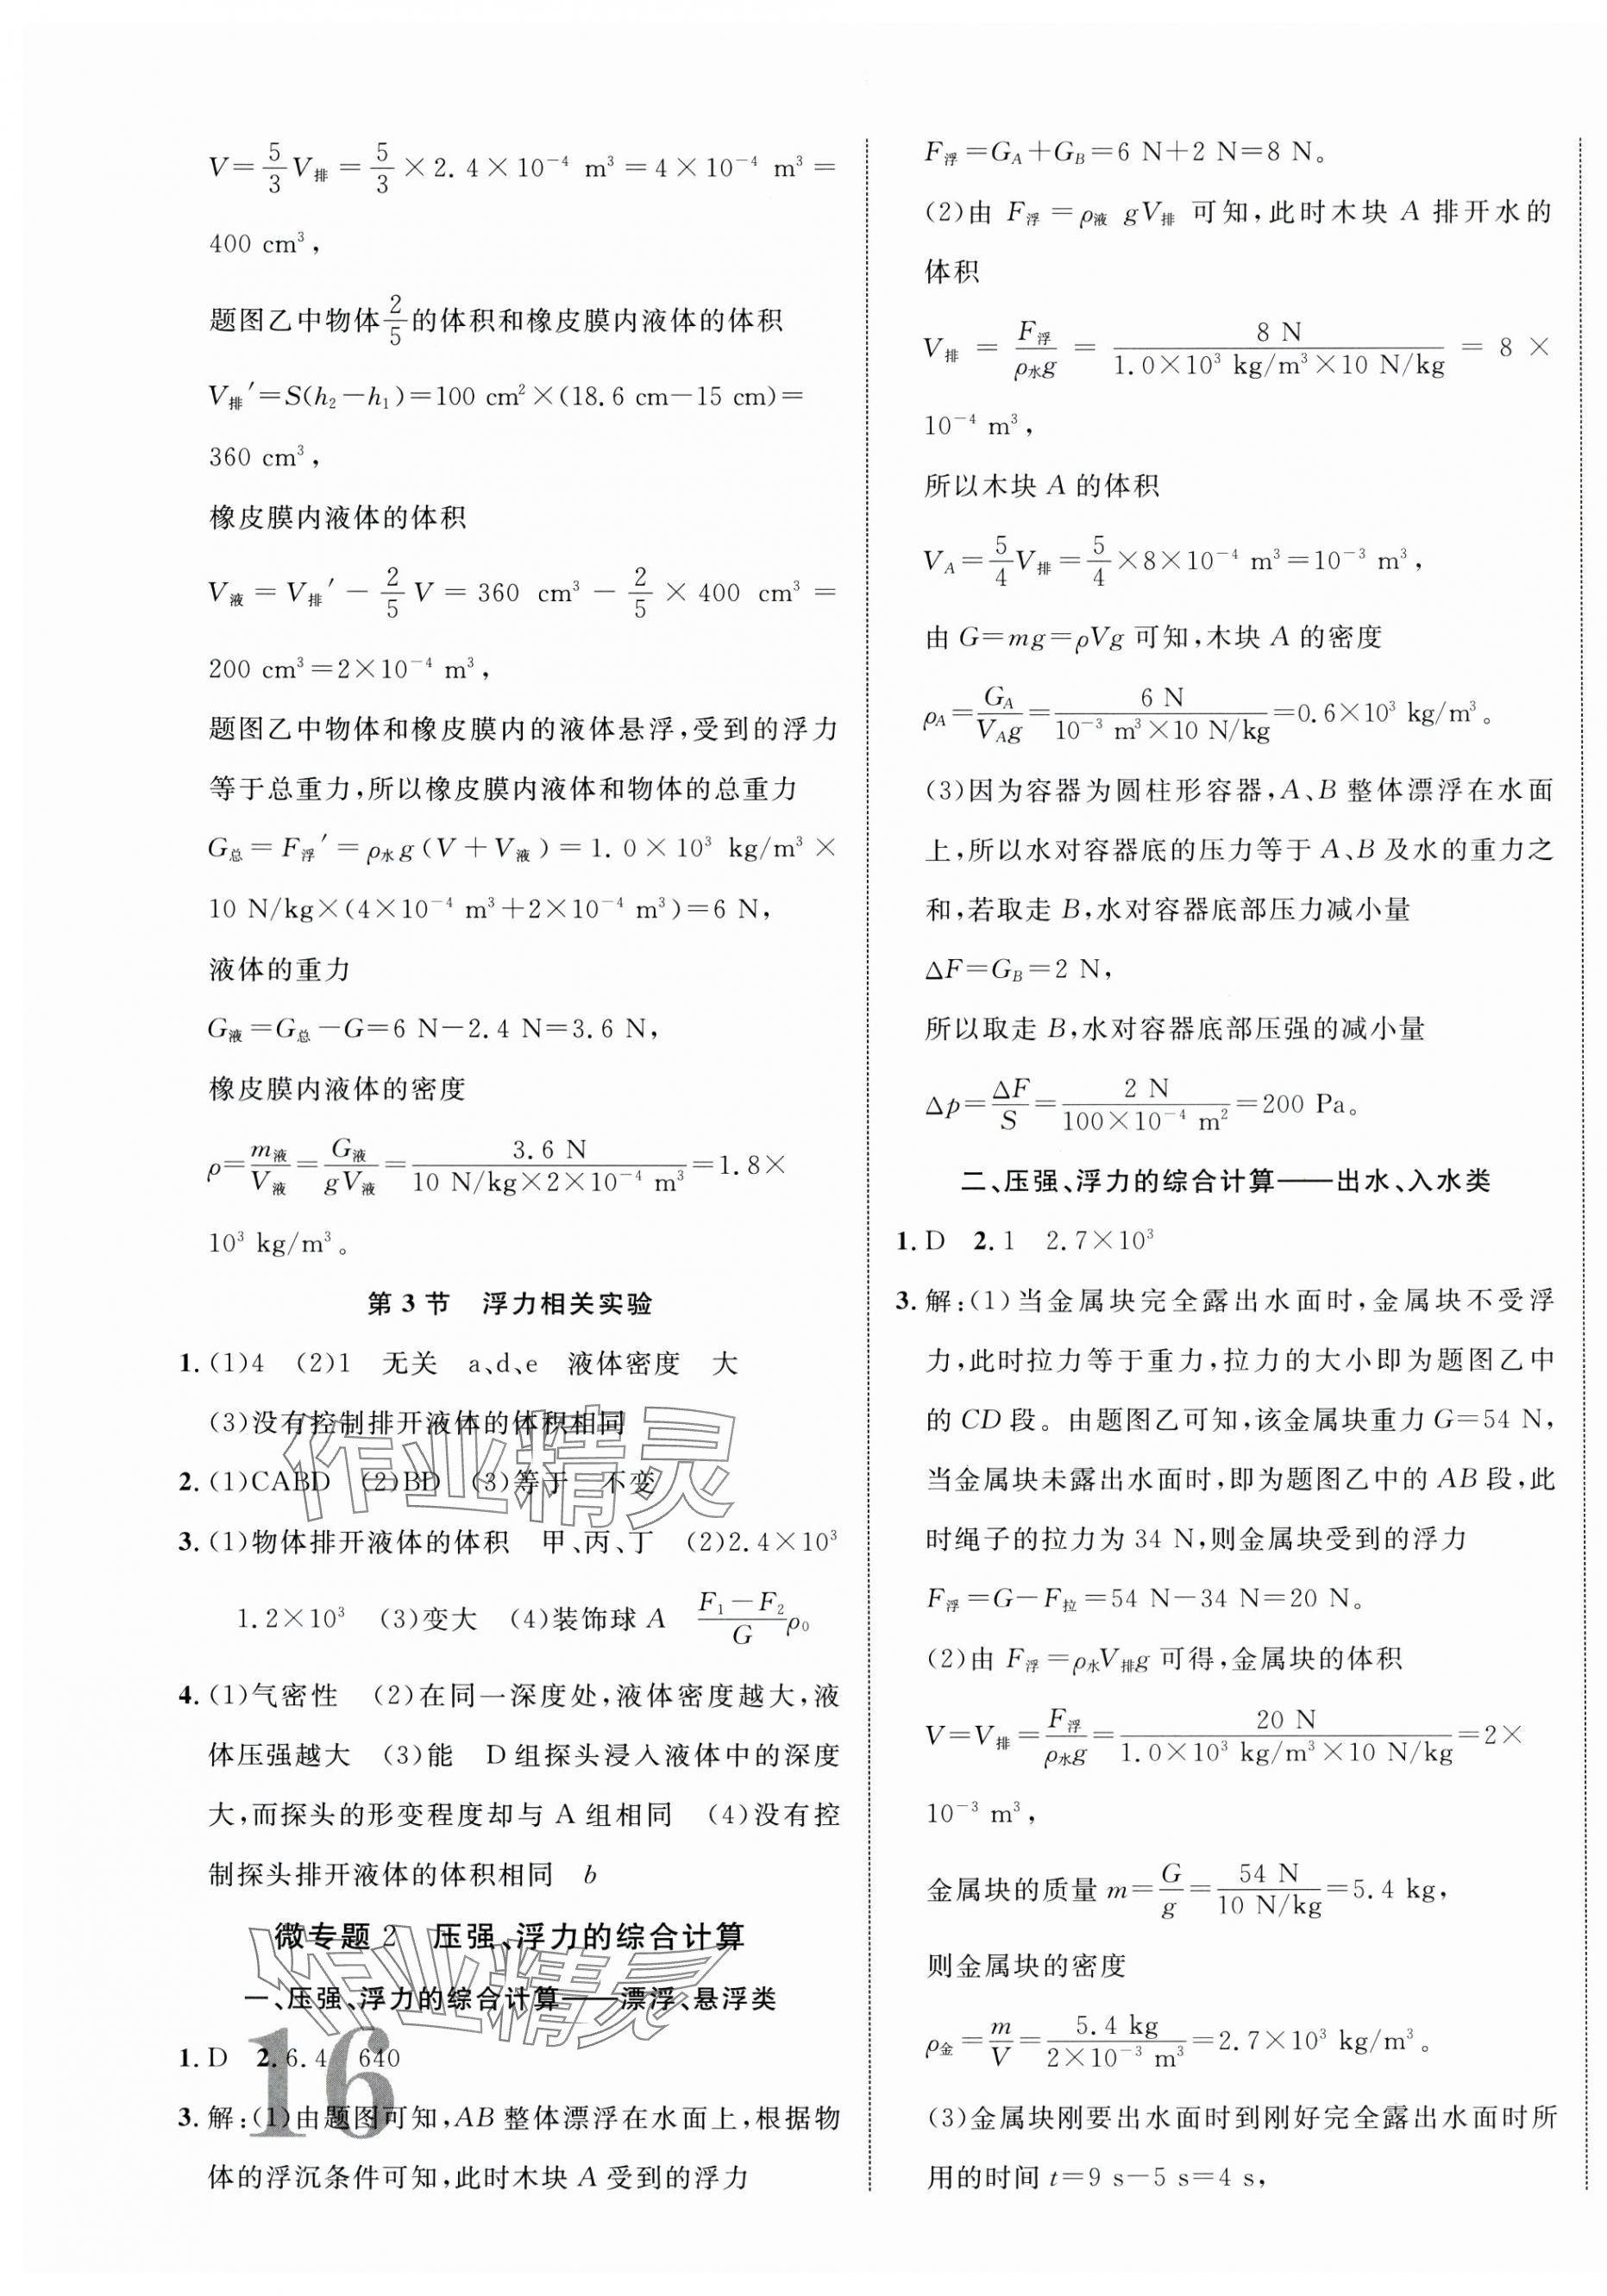 V=5/3V排=5/3×2.4×10⁻⁴ m³=4×10⁻⁴ m³=
400 cm³,
题图乙中物体2/5的体积和橡皮膜内液体的体积
V排′=S(h₂-h₁)=100 cm²×(18.6 cm-15 cm)=
360 cm³,
橡皮膜内液体的体积
V液=V排′-2/5V=360 cm³-2/5×400 cm³=
200 cm³=2×10⁻⁴ m³,
题图乙中物体和橡皮膜内的液体悬浮,受到的浮力
等于总重力,所以橡皮膜内液体和物体的总重力
G总=F浮′=ρ水g(V+V液)=1.0×10³ kg/m³×
10 N/kg×(4×10⁻⁴ m³+2×10⁻⁴ m³)=6 N,
液体的重力
G液=G总-G=6 N-2.4 N=3.6 N,
橡皮膜内液体的密度
ρ=m液/V液=G液/gV液=3.6 N/(10 N/kg×2×10⁻⁴ m³)=1.8×
10³ kg/m³。
第3节 浮力相关实验
1.(1)4 (2)1 无关 a、d、e 液体密度 大
(3)没有控制排开液体的体积相同
2.(1)CABD (2)BD (3)等于 不变
3.(1)物体排开液体的体积 甲、丙、丁 (2)2.4×10³
1.2×10³ (3)变大 (4)装饰球A (F₁-F₂)/G ρ₀
4.(1)气密性 (2)在同一深度处,液体密度越大,液
体压强越大 (3)能 D组探头浸入液体中的深度
大,而探头的形变程度却与A组相同 (4)没有控
制探头排开液体的体积相同 b
微专题2 压强、浮力的综合计算
一、压强、浮力的综合计算——漂浮、悬浮类
1.D 2.6.4 640
3.解:(1)由题图可知,AB整体漂浮在水面上,根据物
体的浮沉条件可知,此时木块A受到的浮力
16
作业精灵
作业精灵
F浮=G_A+G_B=6 N+2 N=8 N。
(2)由F浮=ρ液gV排可知,此时木块A排开水的
体积
V排=F浮/ρ水g=8 N/(1.0×10³ kg/m³×10 N/kg)=8×
10⁻⁴ m³,
所以木块A的体积
V_A=5/4V排=5/4×8×10⁻⁴ m³=10⁻³ m³,
由G=mg=ρVg可知,木块A的密度
ρ_A=G_A/V_Ag=6 N/(10⁻³ m³×10 N/kg)=0.6×10³ kg/m³。
(3)因为容器为圆柱形容器,A、B整体漂浮在水面
上,所以水对容器底的压力等于A、B及水的重力之
和,若取走B,水对容器底部压力减小量
ΔF=G_B=2 N,
所以取走B,水对容器底部压强的减小量
Δp=ΔF/S=2 N/(100×10⁻⁴ m²)=200 Pa。
二、压强、浮力的综合计算——出水、入水类
1.D 2.1 2.7×10³
3.解:(1)当金属块完全露出水面时,金属块不受浮
力,此时拉力等于重力,拉力的大小即为题图乙中
的CD段。由题图乙可知,该金属块重力G=54 N,
当金属块未露出水面时,即为题图乙中的AB段,此
时绳子的拉力为34 N,则金属块受到的浮力
F浮=G-F拉=54 N-34 N=20 N。
(2)由F浮=ρ水V排g可得,金属块的体积
V=V排=F浮/ρ水g=20 N/(1.0×10³ kg/m³×10 N/kg)=2×
10⁻³ m³,
金属块的质量m=G/g=54 N/(10 N/kg)=5.4 kg,
则金属块的密度
ρ金=m/V=5.4 kg/(2×10⁻³ m³)=2.7×10³ kg/m³。
(3)金属块刚要出水面时到刚好完全露出水面时所
用的时间t=9 s-5 s=4 s,